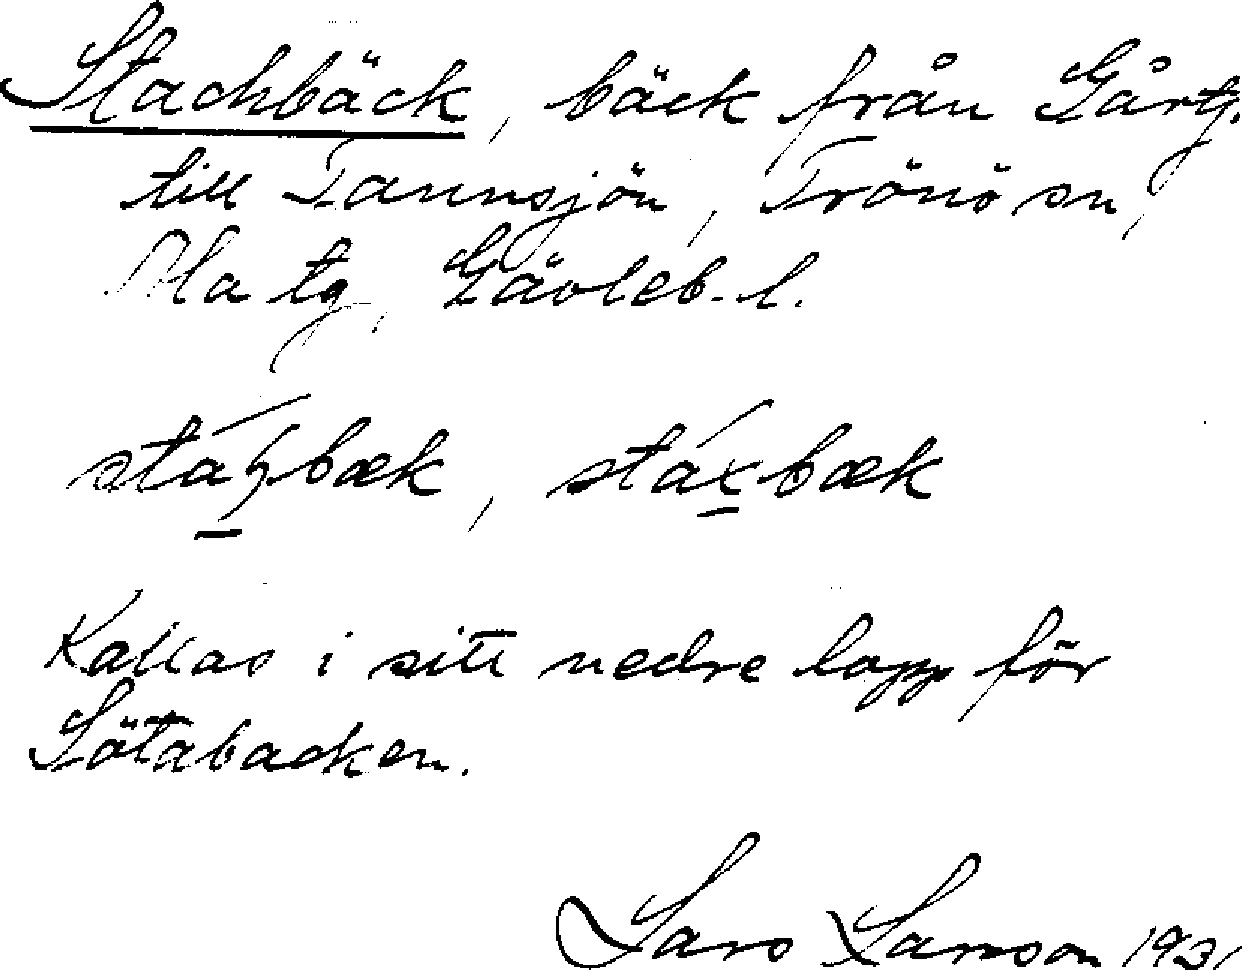 Stachbäck, bäck från Gårtj.
till Tannsjön, Trönö sn,
Ala tg, Gävleb. l.
stáχbæk, stáxbæk
Kallas i sitt nedre lopp för
Sötabäcken.
Lars Larsson 1931